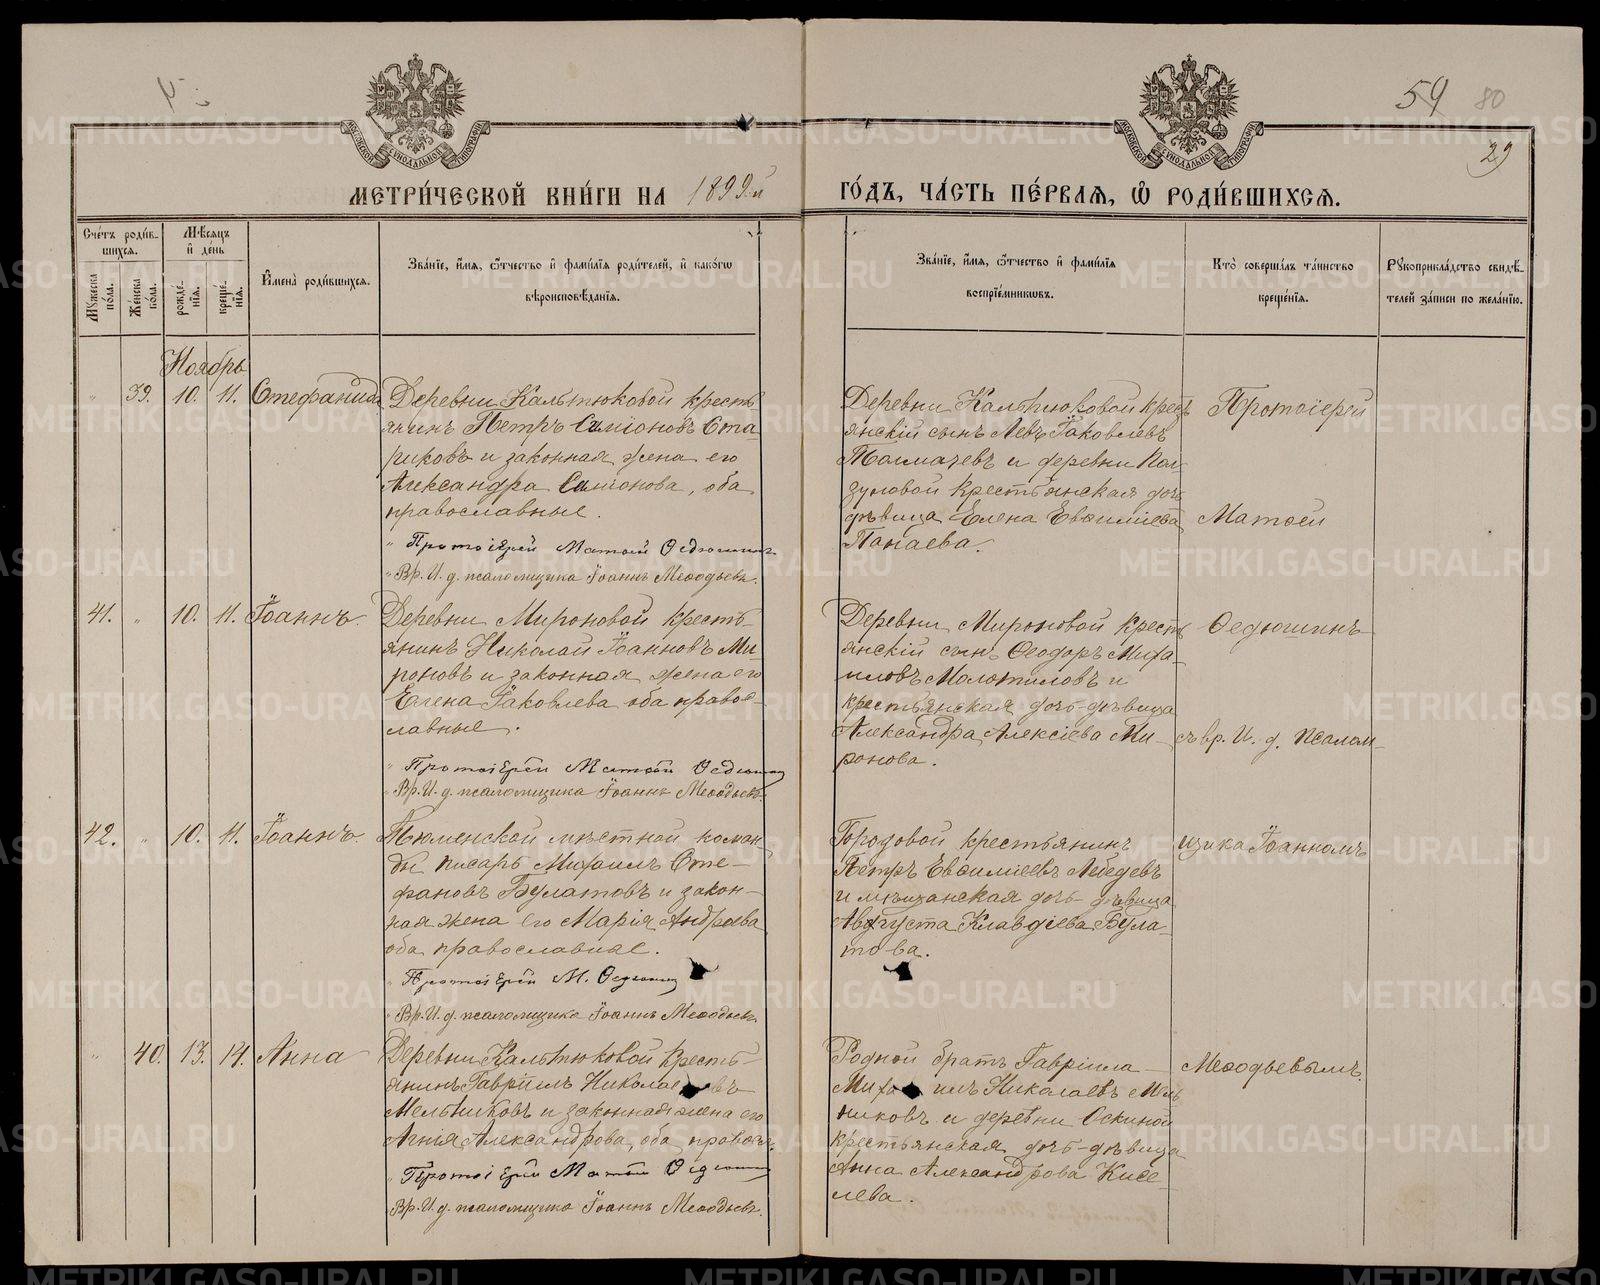 59 80
29
МОСКОВСКОЙ СѴНОДАЛЬНОЙ ТИПОГРАФІИ
МОСКОВСКОЙ СѴНОДАЛЬНОЙ ТИПОГРАФІИ
МЕТРИ́ЧЕСКОЙ КНИ́ГИ НА 1899й
ГО́ДЪ, ЧА́СТЬ ПЕ́РВАѦ, Ѡ҆ РОДИ́ВШИХСѦ.
Сче́тъ роди́в-
шихсѧ.
Мꙋжеска
по́ла.
Же́нска
по́ла.
Мѣ́сѧцъ
и҆ де́нь
рожде́-
нїѧ.
креще́-
нїѧ.
И҆мена̀ роди́вшихсѧ.
Зва́нїе, и҆́мѧ, ѻ҆́тчество и҆ фами́лїѧ роди́телей, и҆ како́гѡ
вѣроисповѣ́данїѧ.
Зва́нїе, и҆́мѧ, ѻ҆́тчество и҆ фами́лїѧ
воспрїе́мникѡвъ.
Кто̀ соверша́лъ та́инство
креще́нїѧ.
Рꙋкоприкла́дство свидѣ́-
телей за́писи по жела́нїю.
Ноябрь
" 39. 10. 11. Стефанида
Деревни Кальтюковой кресть-
янинъ Петръ Симіоновъ Ста-
риковъ и законная жена его
Александра Симіонова, оба
православные.
" Протоіерей Матѳей Ѳедюшинъ
" Вр. И. д. псаломщика Іоаннъ Меѳодьевъ.
Деревни Кальтюковой крест
янскій сынъ Левъ Іаковлевъ
Толмачевъ и деревни
крестьянская дочь
дѣвица Елена Евѳиміева
Панаева.
Протоіерей
Матѳей
41. " 10. 11. Іоаннъ.
Деревни Мироновой кресть-
янинъ Николай Іоанновъ Ми-
роновъ и законная жена его
Елена Іаковлева оба право-
славные.
" Протоіерей Матѳей Ѳедюшин
" Вр. И. д. псаломщика Іоаннъ Меѳодьевъ.
Деревни Мироновой крест
янскій сынъ Ѳеодоръ Миха-
иловъ Молотиловъ и
крестьянская дочь-дѣвица
Александра Алексіева Ми-
ронова.
Ѳедюшинъ
съ вр. И. д. псалом-
42. " 10. 11. Іоаннъ.
Тюменской мѣстной коман-
ды писарь Михаилъ Сте-
фановъ Булатовъ и закон-
ная жена его Марія Андреева
оба православные.
" Протоіерей М. Ѳедюшин
" Вр. И. д. псаломщика Іоаннъ Меѳодьевъ.
Городовой крестьянинъ
Петръ Евѳиміевъ Лебедевъ
и мѣщанская дочь-дѣвица
Августа Клавдіева Була-
това.
щика Іоанномъ
" 40. 13. 14. Анна
Деревни Кальтюковой кресть-
янинъ Гавріилъ Николаевъ
Мельниковъ и законная жена его
Агнія Александрова, оба правосл.
" Протоіерей Матѳей Ѳедюшин
Вр. И. д. псаломщика Іоаннъ Меѳодьевъ.
Родной братъ Гавріила
Михаилъ Николаевъ Мель
никовъ и деревни Оскиной
крестьянская дочь-дѣвица
Анна Александрова Кисе-
лева.
Меѳодьевымъ.
METRIKI.GASO-URAL.RU